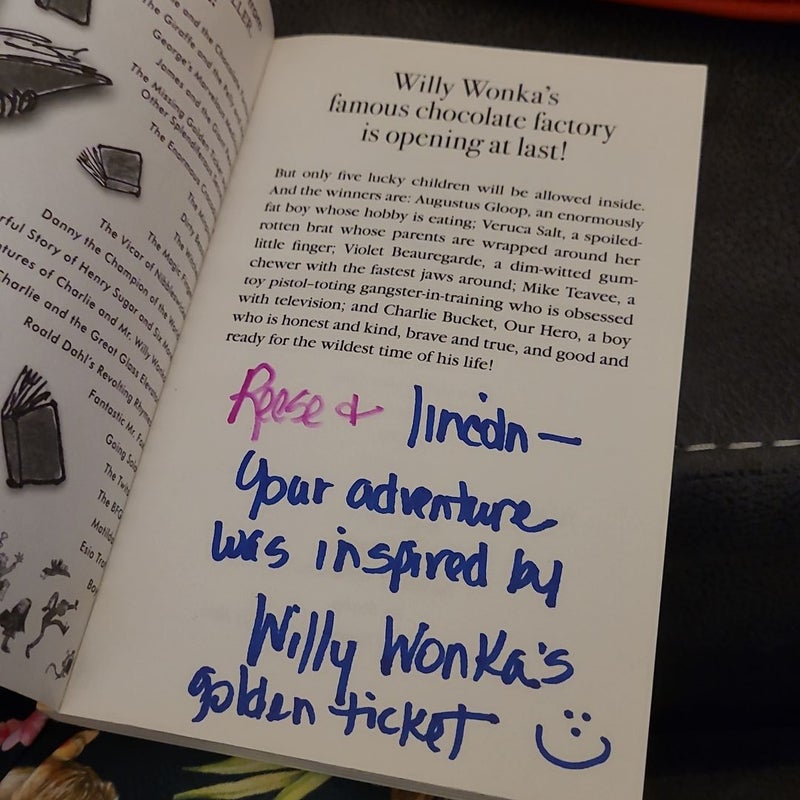 from
The Giraffe and the Pelly and
George's Marvelous
James and the Giant
The Missing Golden Ticket
Other Splendiferous
The Enormous
The Magic
The Vicar of Nibbleswicke
Danny the Champion of the World
Story of Henry Sugar and Six
of Charlie and Mr. Willy Wonka
Charlie and the Great Glass
Roald Dahl's Revolting Rhymes
Fantastic Mr.
Going Solo
The
The BFG
Matilda
Esio
Willy Wonka's
famous chocolate factory
is opening at last!
But only five lucky children will be allowed inside.
And the winners are: Augustus Gloop, an enormously
fat boy whose hobby is eating; Veruca Salt, a spoiled-
rotten brat whose parents are wrapped around her
little finger; Violet Beauregarde, a dim-witted gum-
chewer with the fastest jaws around; Mike Teavee, a
toy pistol–toting gangster-in-training who is obsessed
with television; and Charlie Bucket, Our Hero, a boy
who is honest and kind, brave and true, and good and
ready for the wildest time of his life!
Reese & lincoln —
Your adventure
was inspired by
Willy Wonka's
golden ticket